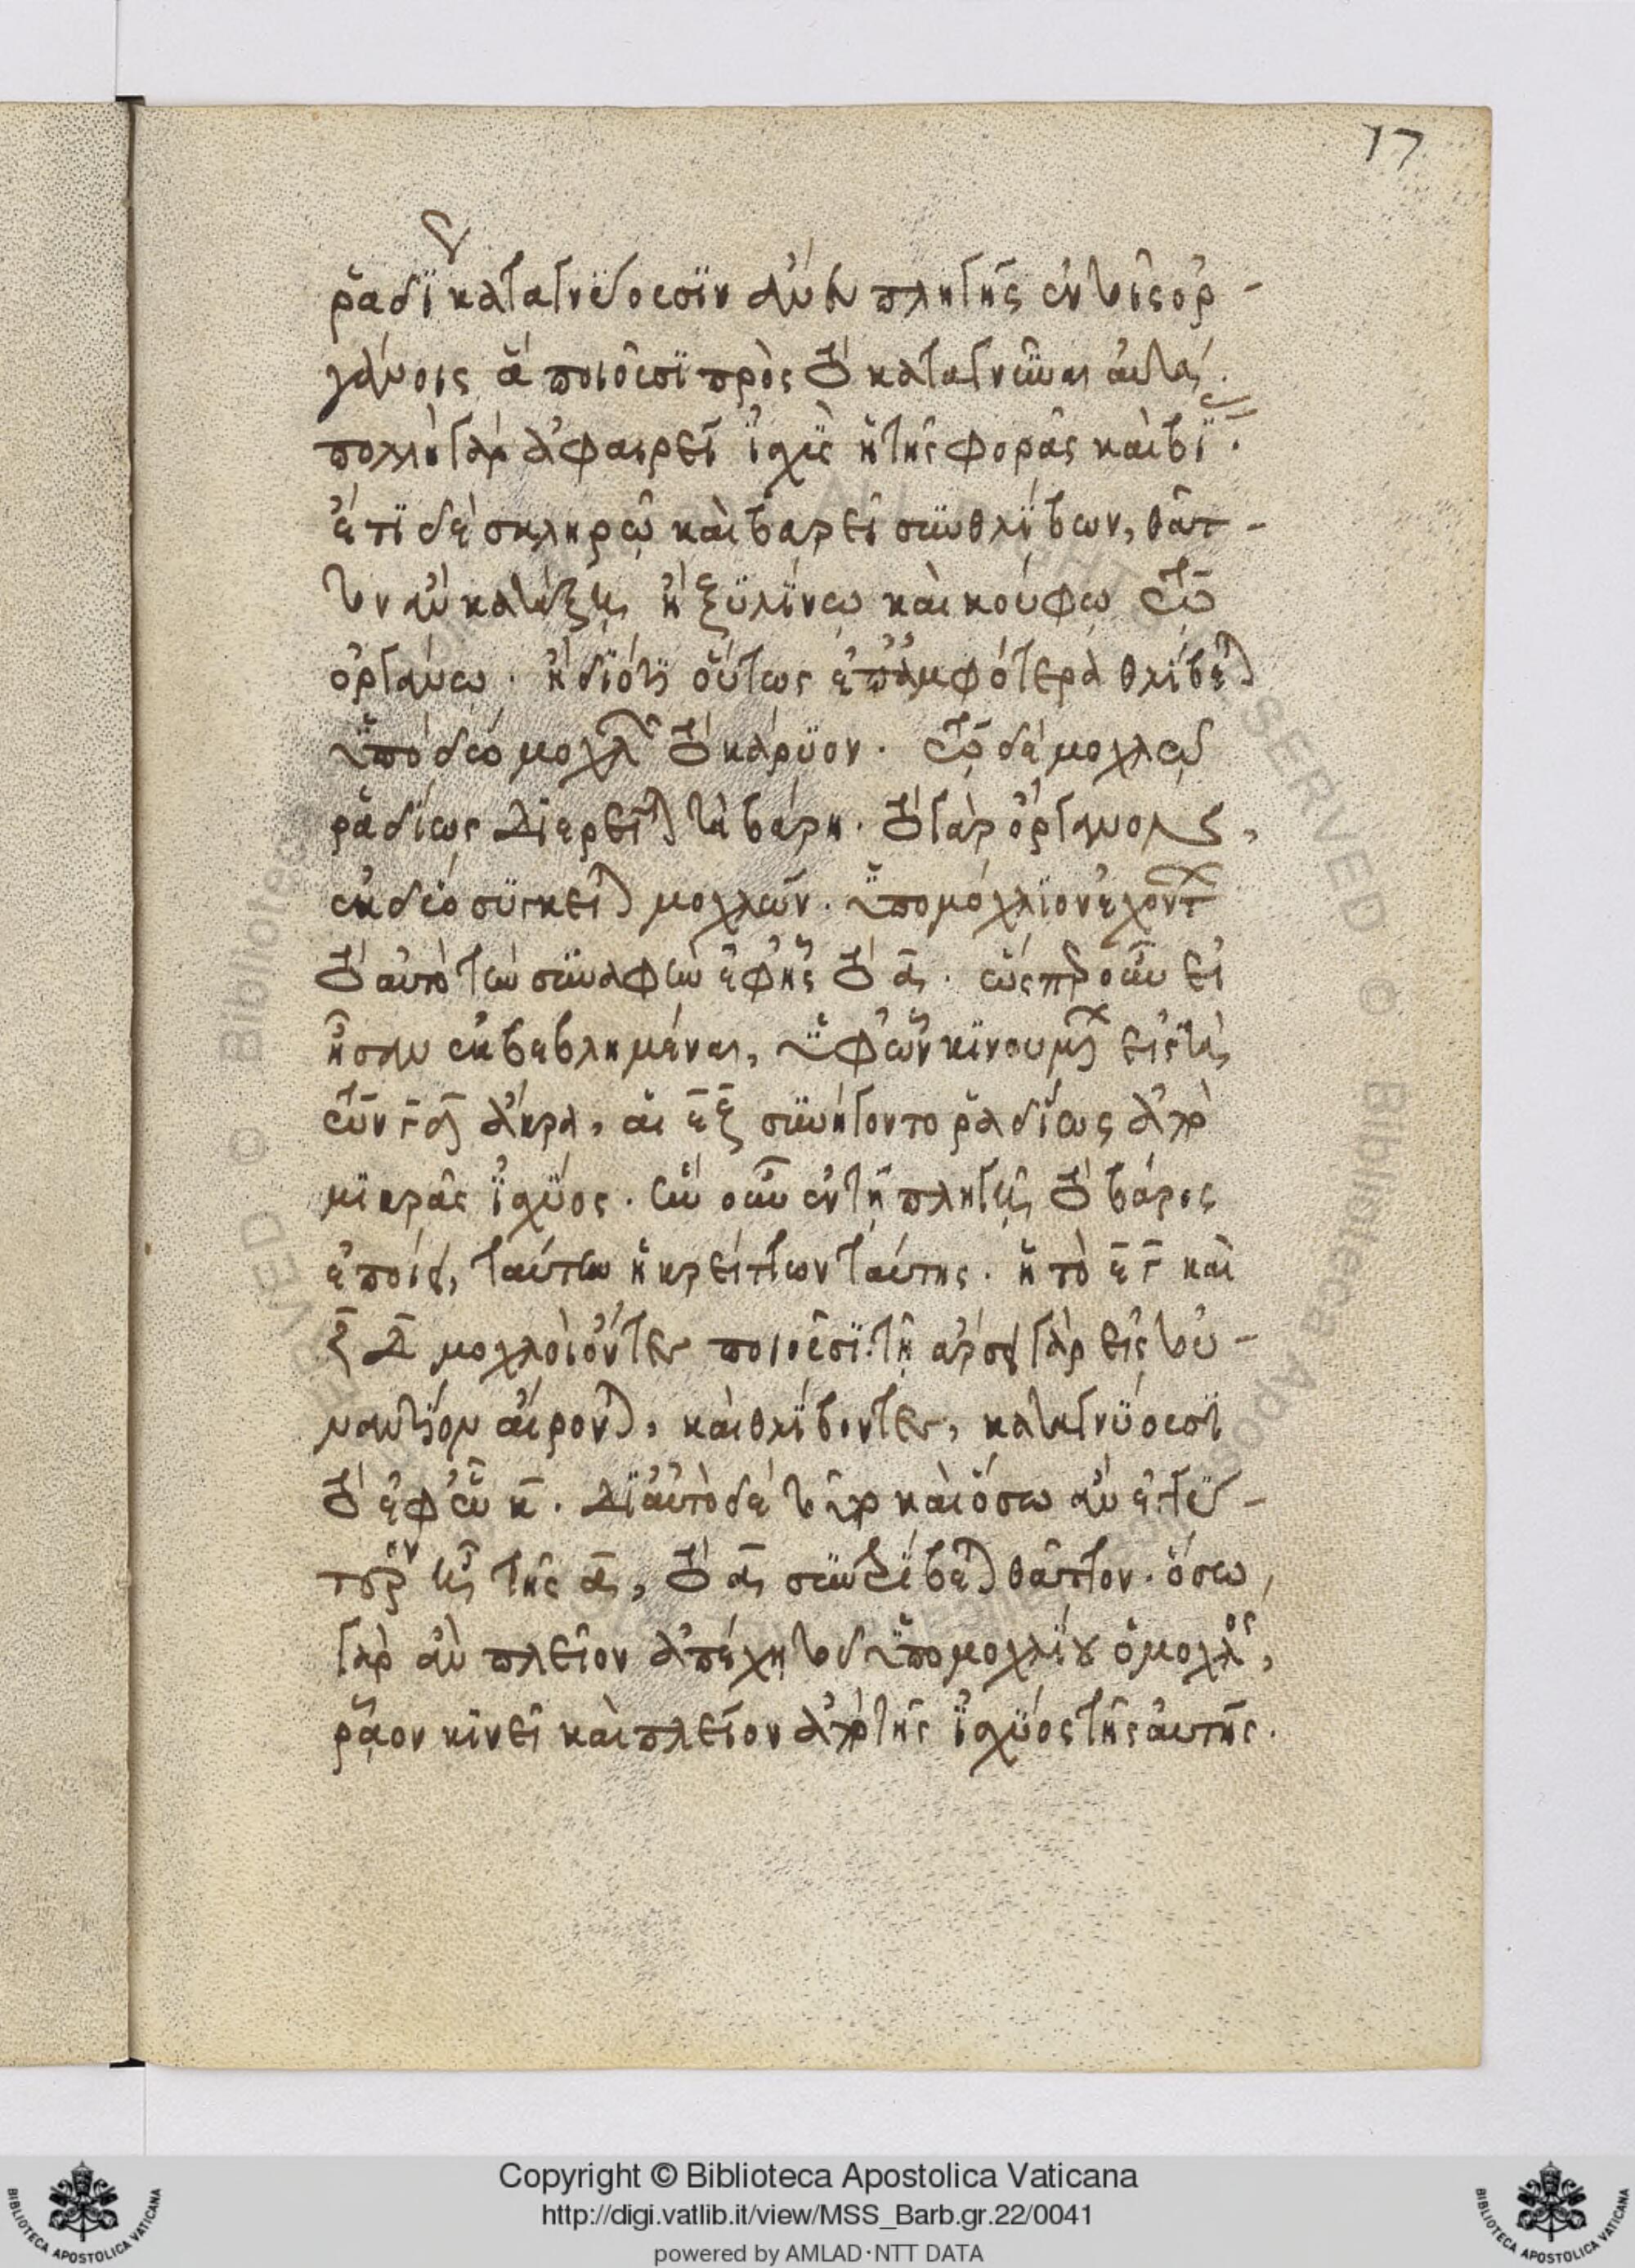 17
ῥαδίως καταγνύουσιν ἄνευ πληγῆς ἐν τοῖς ὀρ-
γάνοις ἃ ποιοῦσι πρὸς τὸ καταγνύναι αὐτά.
πολλὴ γὰρ ἀφαιρεῖται ἰσχὺς ἡ τῆς φορᾶς καὶ βίας.
ἔτι δὲ σκληρῷ καὶ βαρεῖ συνθλίβων, θᾶτ-
τον ἂν κατάξαι ἢ ξυλίνῳ καὶ κούφῳ τῷ
ὀργάνῳ. ἢ διότι οὕτως ἐπ' ἀμφότερα θλίβεται
ὑπὸ δύο μοχλῶν τὸ κάρυον. τῷ δὲ μοχλῷ
ῥᾳδίως διαιρεῖται τὰ βάρη. τὸ γὰρ ὄργανον
ἐκ δύο σύγκειται μοχλῶν. ὑπομόχλιον ἐχόντων
τὸ αὐτὸ τὴν συναφὴν ἐφ' ἧς τὸ α. ὥσπερ οὖν εἰ
ἦσαν ἐκβεβλημέναι, ὑφ' ὧν κινουμένων εἰς τὰ
τῶν γδ ἄκρα, αἱ εζ συνήγοντο ῥᾳδίως ἀπὸ
μικρᾶς ἰσχύος. ἣν οὖν ἐν τῇ πληγῇ τὸ βάρος
ἐποίει, ταύτην ἡ κρείττων ταύτης. ἡ τὸ εγ καὶ
ζδ μοχλοὶ ὄντες ποιοῦσι. τῇ ἄρσει γὰρ εἰς τοὐ-
ναντίον αἴρονται, καὶ θλίβοντες, καταγνύουσι
τὸ ἐφ' ᾧ κ. δι' αὐτὸ δὲ τοῦτο καὶ ὅσῳ ἂν ἐγγύ-
τερον ᾖ τῆς α, τὸ α συντρίβεται θᾶττον. ὅσῳ
γὰρ ἂν πλεῖον ἀπέχῃ τοῦ ὑπομοχλίου ὁ μοχλός,
ῥᾷον κινεῖ καὶ πλεῖον ἀπὸ τῆς ἰσχύος τῆς αὐτῆς.
Copyright © Biblioteca Apostolica Vaticana
http://digi.vatlib.it/view/MSS_Barb.gr.22/0041
powered by AMLAD·NTT DATA